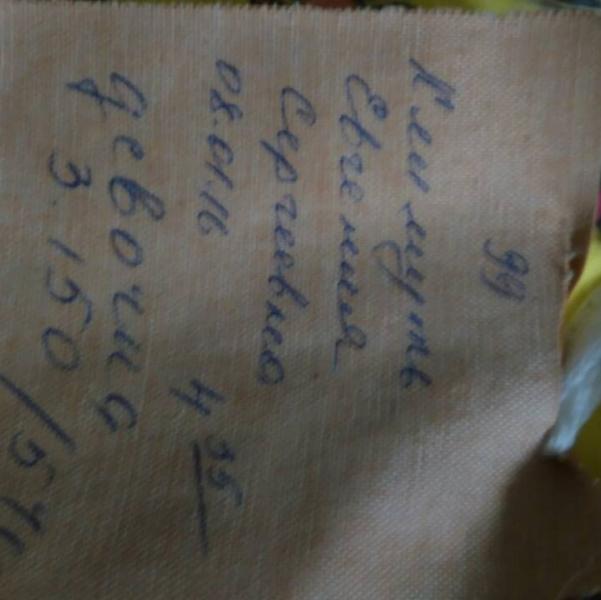 99
Климуть
Евгения
Сергеевна
08.01.16 4 35
девочка
3.150 / 57